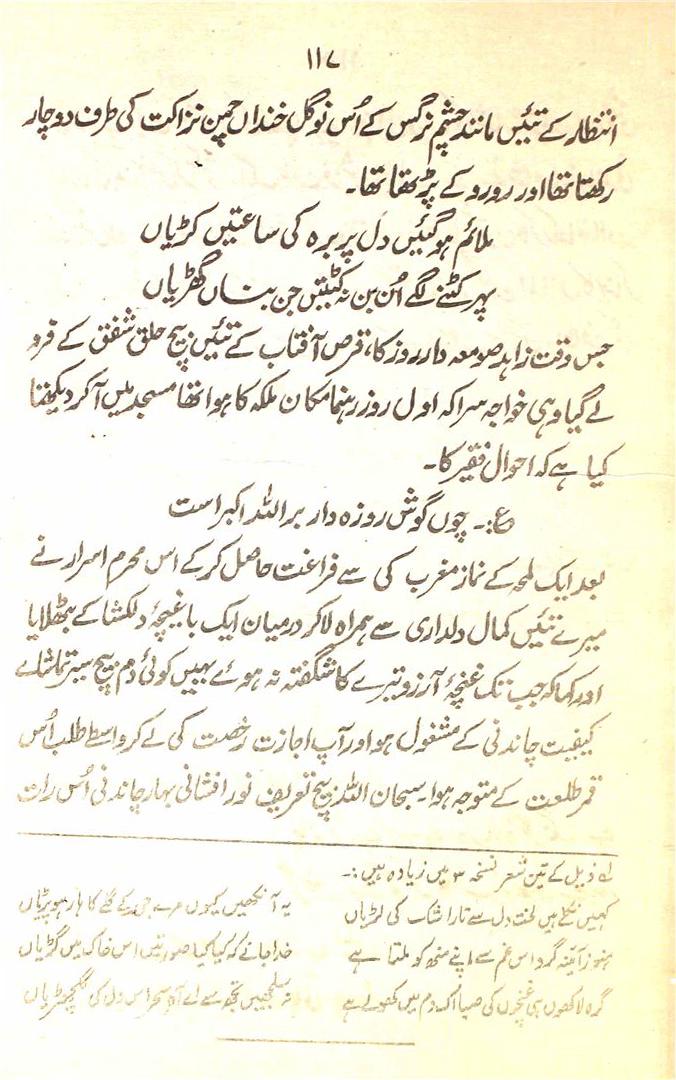 ۱۱۷
انتظار کے تئیں مانند چشم نرگس کے اُس نوگل خنداں چمن نزاکت کی طرف دوچار
رکھتا تھا اور رو رو کے پڑھتا تھا۔
ملائم ہوگئیں دل پر برہ کی ساعتیں کڑیاں
پہر کٹنے لگے اُن بن نہ کٹتیں جن بناں گھڑیاں
جس وقت زاہد صومعہ دار روز کا، قرص آفتاب کے تئیں بیچ حلق شفق کے فرو
لے گیا وہی خواجہ سرا کہ اول روز رہنما مکان ملکہ کا ہوا تھا مسجد میں آکر دیکھتا
کیا ہے کہ احوال فقیر کا۔
ع:۔ چوں گوش روزہ دار بر اللہ اکبر است
بعد ایک لمحہ کے نماز مغرب کی سے فراغت حاصل کرکے اس محرم اسرار نے
میرے تئیں کمال دلداری سے ہمراہ لاکر درمیان ایک باغیچۂ دلکشا کے بٹھلایا
اور کہا کہ جب تک غنچۂ آرزو تیرے کا شگفتہ نہ ہوے یہیں کوئی دم بیچ سیر تماشاے
کیفیت چاندنی کے مشغول ہو اور آپ اجازت رخصت کی لے کر واسطے طلب اُس
قمر طلعت کے متوجہ ہوا۔ سبحان اللہ بیچ تعریف نور افشانی بہار چاندنی اُس رات
لے ذیل کے تین شعر نسخہ ۳ میں زیادہ ہیں:۔
کہیں نکلے ہیں لخت دل سے تار اشک کی لڑیاں یہ آنکھیں کیوں مرے جی کے گلے کا ہار ہو پڑیاں
ہنوز آئینہ گرد اس غم سے اپنے منھ کو ملتا ہے خدا جانے کہ کیا کیا صورتیں اس خاک میں گڑیاں
گرہ لاکھوں ہی غنچوں کی صبا اک دم میں کھولے ہے نہ سلجھیں تجھ سے اے آہ سحر اس دل کی گلجھڑیاں